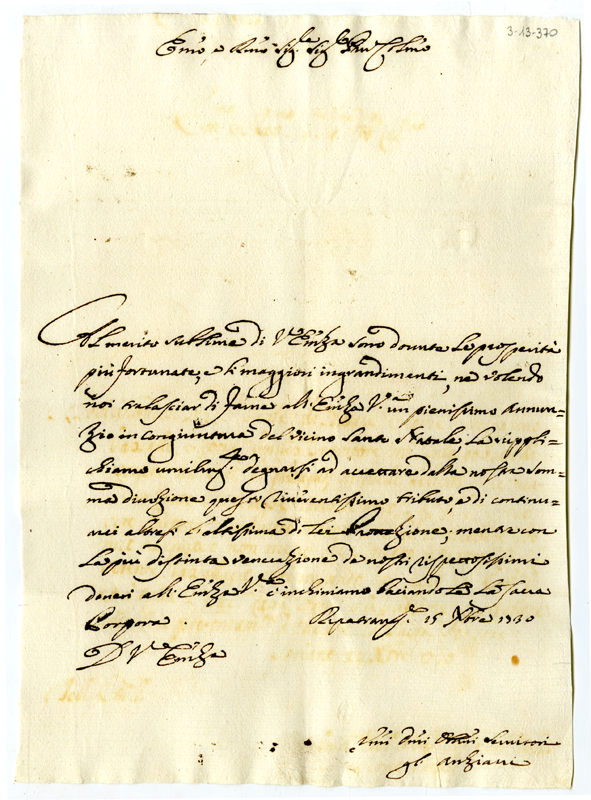 3-13-370
Emo, e Rmo Sig.re Sig.re Pron Colmo
Al merito sublime di V.a Emza sono dovute le prosperità
più fortunate, e li maggiori ingrandimenti, ne volendo
noi tralasciar di farne all'Emza V.a un pienissimo Annun=
zio in congiuntura del vicino Santo Natale, La suppli=
chiamo umilmte degnarsi ad accettare dalla nostra som=
ma divozione questo riverentissimo tributo, e di continu=
arci altresì l'altissima di Lei Protezione; mentre con
la più distinta venerazione de nostri rispettosissimi
doveri all'Emza V.a c'inchiniamo baciandole La Sacra
Porpora. Ripatransne 15 Xbre 1730
D V.a Emza
Umi Dmi Servitori
gl'Anziani